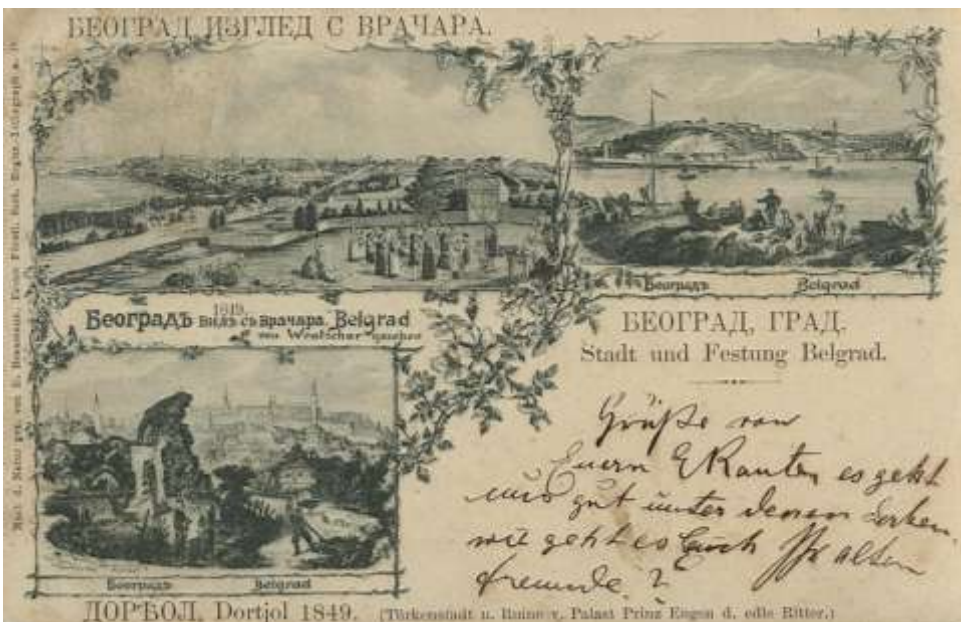 БЕОГРАД ИЗГЛЕД С ВРАЧАРА.
Београдъ 1849. Видъ съ Врачара. Belgrad
von Wratschar gesehen
Београдъ Belgrad
БЕОГРАД, ГРАД.
Stadt und Festung Belgrad.
Grüße von
Euern E Kauten, es geht
mir gut unter denen Serben.
wie geht es Euch Ihr alten
Freunde. ?
Београдъ Belgrad
ДОРЋОЛ, Dortjol 1849. (Türkenstadt u. Ruine v. Palast Prinz Eugen d. edle Ritter.)